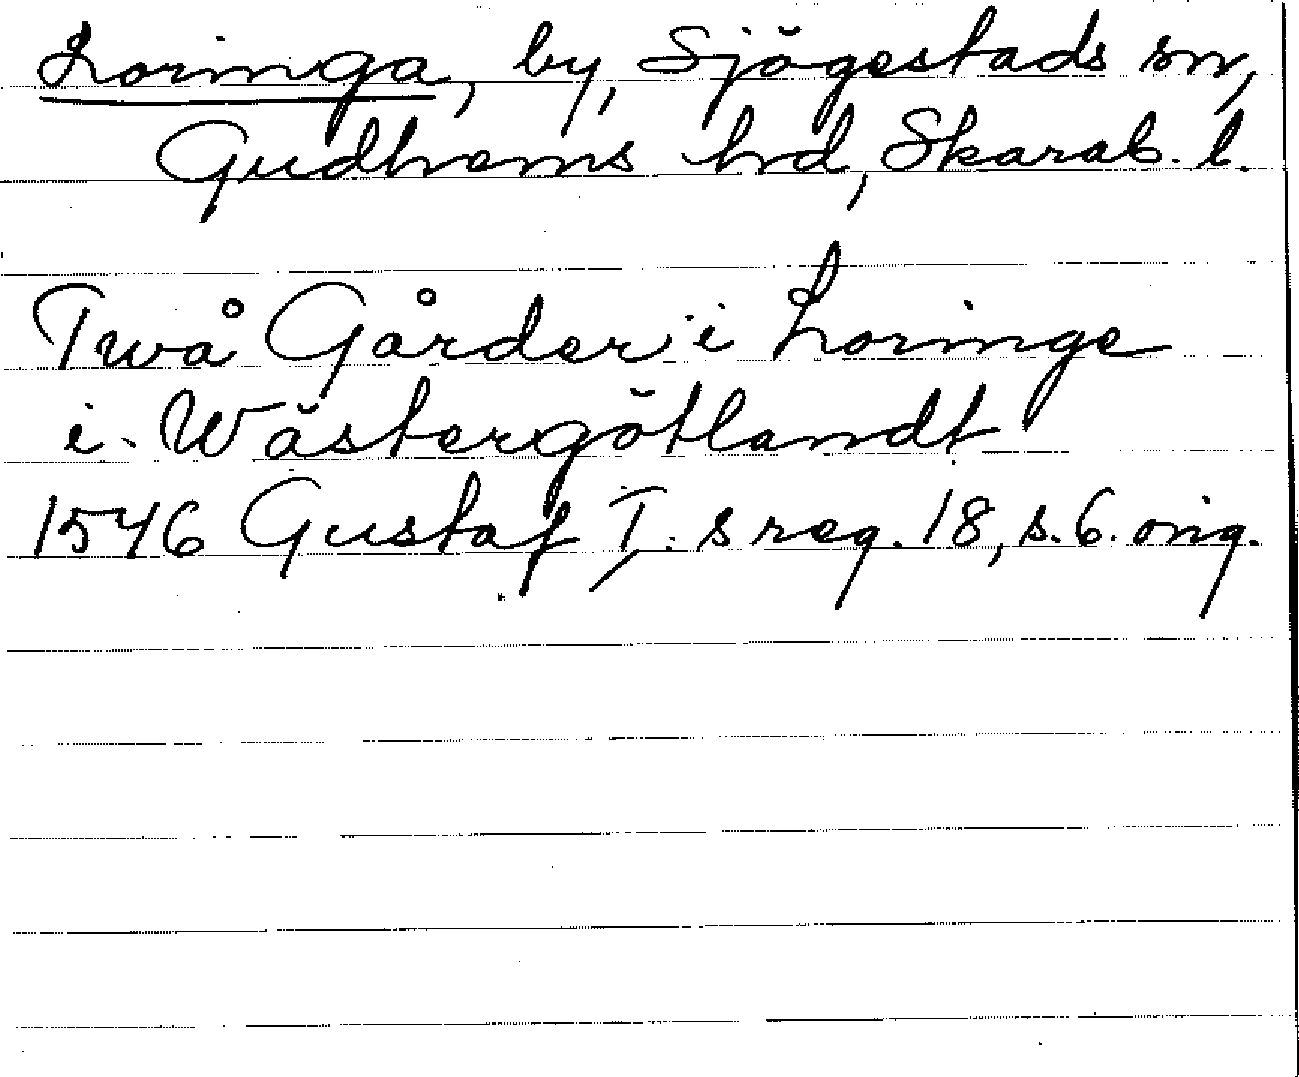 Loringa, by, Sjögestads sn,
Gudhems hd, Skarab. l.
Twå Gårder i Loringe
i Wästergötlandt
1546 Gustaf I:s reg. 18, s. 6. orig.